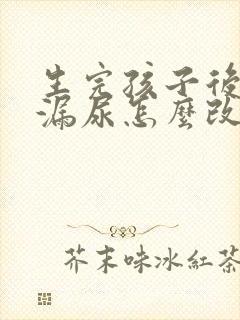 生完孩子後
漏尿怎麼改
芥末味冰紅茶